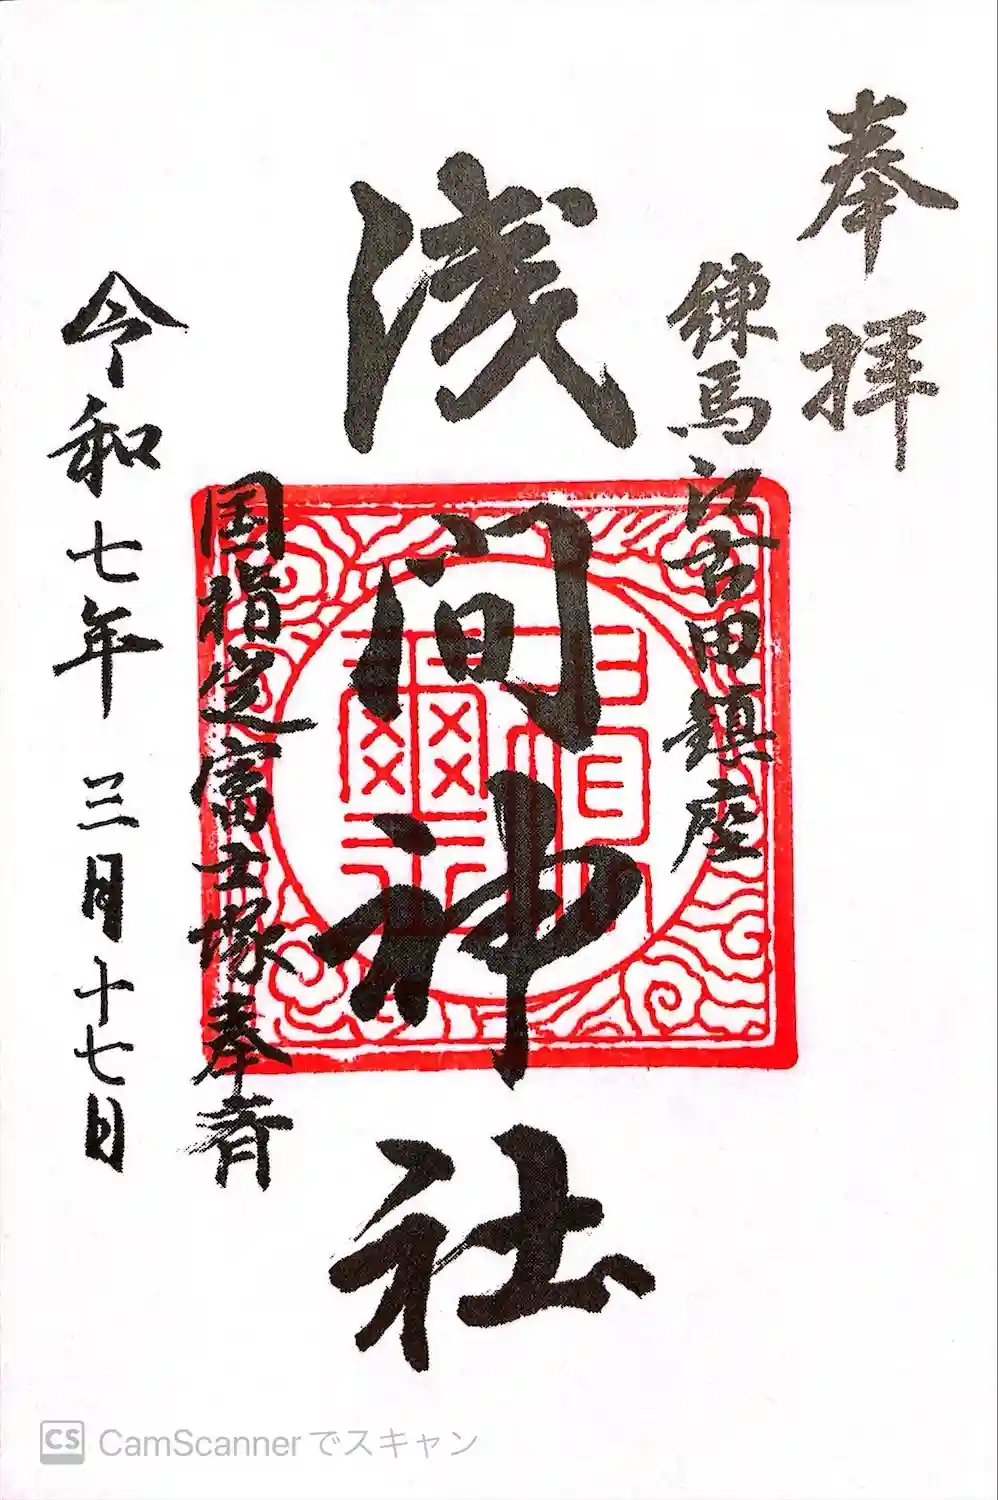 奉拝
練馬江古田鎮座
浅間神社
国指定富士塚奉斉
令和七年 三月十七日
CS CamScannerでスキャン